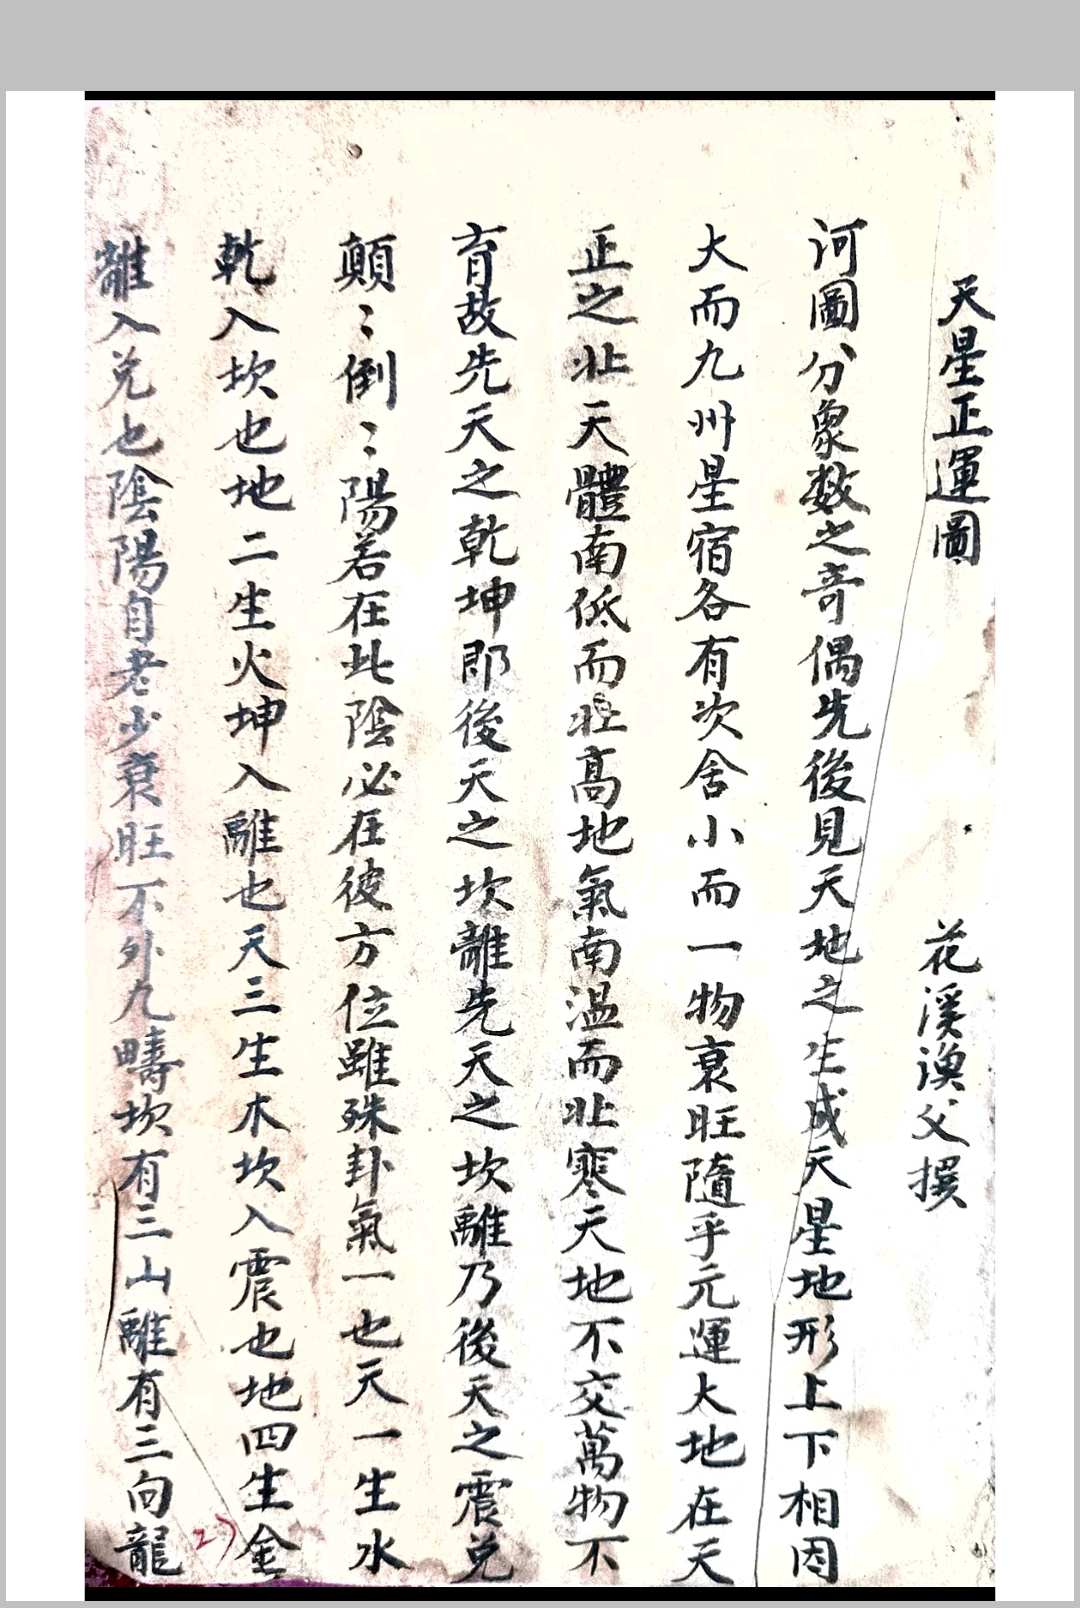 天星正運圖
花溪漁父撰
河圖分象數之奇偶先後見天地之生成天星地形上下相因
大而九州星宿各有次舍小而一物衰旺隨乎元運大地在天
正之北天體南低而北高地氣南溫而北寒天地不交萬物不
育故先天之乾坤即後天之坎離先天之坎離乃後天之震兌
顛〻倒〻陽若在此陰必在彼方位雖殊卦氣一也天一生水
乾入坎也地二生火坤入離也天三生木坎入震也地四生金
離入兌也陰陽自老少衰旺不外九疇坎有三山離有三向龍
27